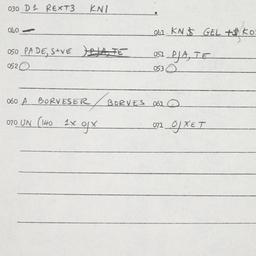 030 D1 REXT3 KNI
040 — 041 KN$ GEL
050 PADE, S+VE 051 P/A, TE
052 O 053 O
060 A BORVESER / BORVES 061 O
070 UN (140 1X OJX 071 OJXET